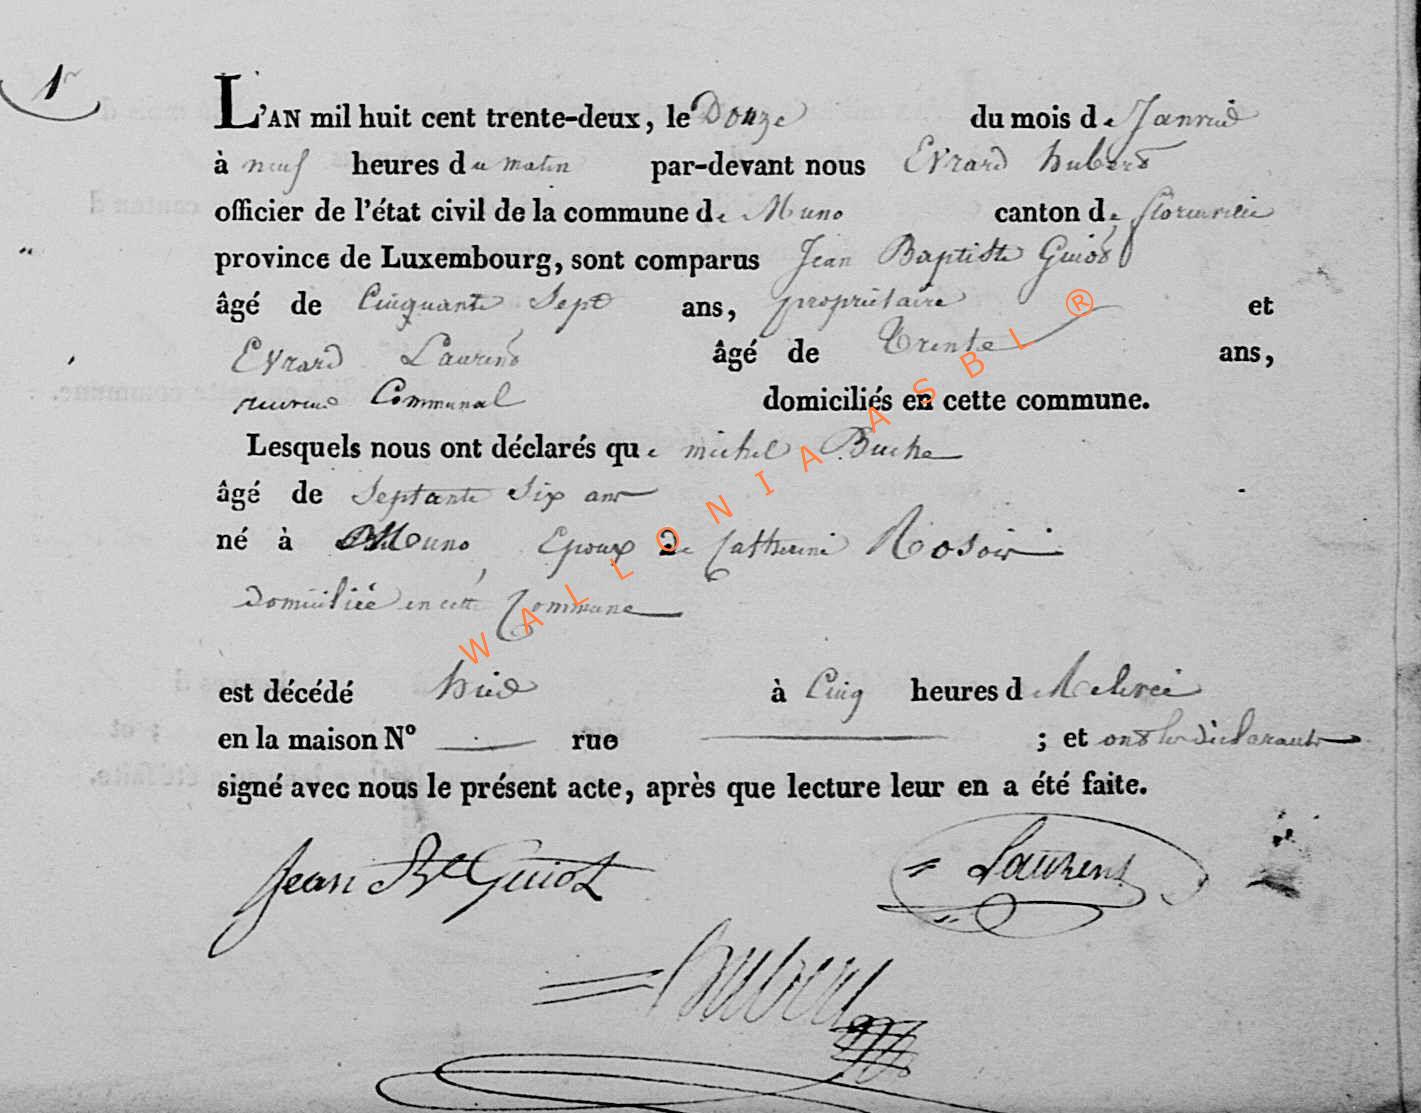 1r
L'AN mil huit cent trente-deux, le Douze du mois de Janvier
à neuf heures du matin par-devant nous Evrard hubert
officier de l'état civil de la commune de Muno canton de florenville
province de Luxembourg, sont comparus Jean Baptiste Guiot
âgé de Cinquante Sept ans, propriétaire et
Evrard Laurent âgé de Trente ans,
Communal domiciliés en cette commune.
Lesquels nous ont déclarés que michel Buche
âgé de Septante Six ans
né à Muno, Epoux de Catherine Rosoir
domiciliée en cette Commune
est décédé hier à Cinq heures d
en la maison N° rue ; et ont les déclarants
signé avec nous le présent acte, après que lecture leur en a été faite.
Jean Bte Guiot Laurent
hubert
WALLONIA ASBL ®